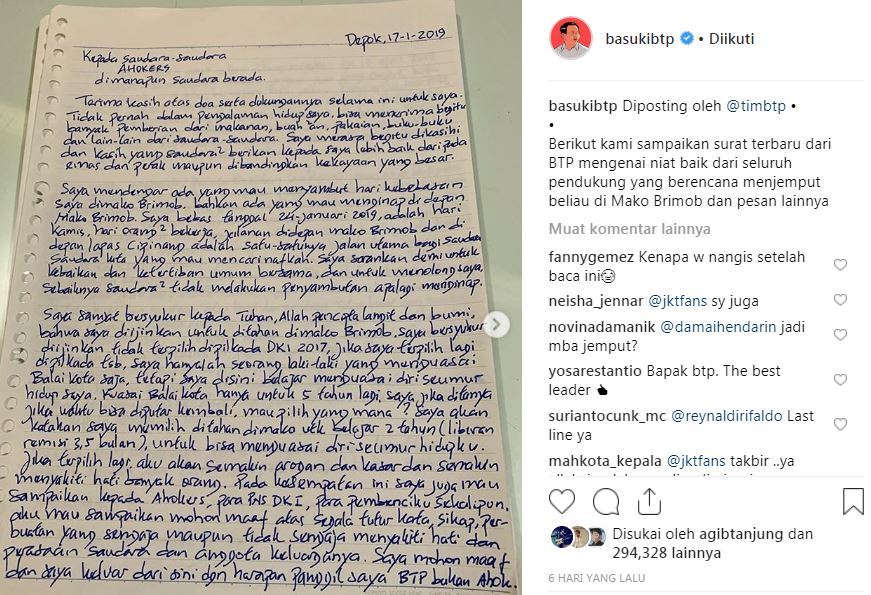 Depok, 17-1-2019
Kepada Saudara-saudara
AHOKERS
dimanapun saudara berada.
Tarima kasih atas doa serta dukungannya selama ini untuk saya.
Tidak pernah dalam pengalaman hidup saya, bisa menerima begitu
banyak pemberian dari makanan, buah²an, pakaian, buku-buku
dan lain-lain dari saudara-saudara. Saya merasa begitu dikasihi
dan kasih yang saudara² berikan kepada saya lebih baik dari pada
emas dan perak maupun dibandingkan kekayaan yang besar.
Saya mendengar ada yang mau menyambut hari kebebasan
saya dimako Brimob. bahkan ada yang mau menginap di depan
Mako Brimob. Saya bebas tanggal 24-januari 2019, adalah hari
Kamis, hari orang² bekerja, jalanan didepan mako Brimob dan di
depan lapas Cipinang adalah satu-satunya jalan utama bagi saudara
saudara kita yang mau mencari nafkah. Saya sarankan demi untuk
kebaikan dan ketertiban umum bersama, dan untuk menolong saya,
sebaiknya saudara² tidak melakukan penyambutan apalagi menginap.
Saya sangat bersyukur kepada Tuhan, Allah pencipta langit dan bumi,
bahwa saya diijinkan untuk ditahan dimako Brimob. saya bersyukur
diijinkan tidak terpilih dipilkada DKI 2017, jika saya terpilih lagi
dipilkada tsb, saya hanyalah seorang laki-laki yang menguasai
Balai Kota saja, tetapi saya disini belajar menguasai diri seumur
hidup saya. Kuasai Balai Kota hanya untuk 5 tahun lagi, saya jika ditanya
jika waktu bisa diputar kembali, mau pilih yang mana? saya akan
katakan saya memilih ditahan dimako utk belajar 2 tahun (liburan
remisi 3,5 bulan), untuk bisa menguasai diri seumur hidupku.
Jika terpilih lagi, aku akan semakin arogan dan kasar dan semakin
menyakiti hati banyak orang. Pada kesempatan ini saya juga mau
sampaikan kepada Ahokers, para PNS DKI, para pembenciku sekalipun.
aku mau sampaikan mohon maaf atas segala tutur kata, sikap, per-
buatan yang sengaja maupun tidak sengaja menyakiti hati dan
perasaan saudara dan anggota keluarganya. Saya mohon maaf
dan saya keluar dari sini dgn harapan panggil saya BTP bukan Ahok.
basukibtp • Diikuti
basukibtp Diposting oleh @timbtp •
•
Berikut kami sampaikan surat terbaru dari
BTP mengenai niat baik dari seluruh
pendukung yang berencana menjemput
beliau di Mako Brimob dan pesan lainnya
Muat komentar lainnya
fannygemez Kenapa w nangis setelah
baca ini😭
neisha_jennar @jktfans sy juga
novinadamanik @damaihendarin jadi
mba jemput?
yosarestantio Bapak btp. The best
leader 👍
suriantocunk_mc @reynaldirifaldo Last
line ya
mahkota_kepala @jktfans takbir ..ya
Disukai oleh agibtanjung dan
294,328 lainnya
6 HARI YANG LALU